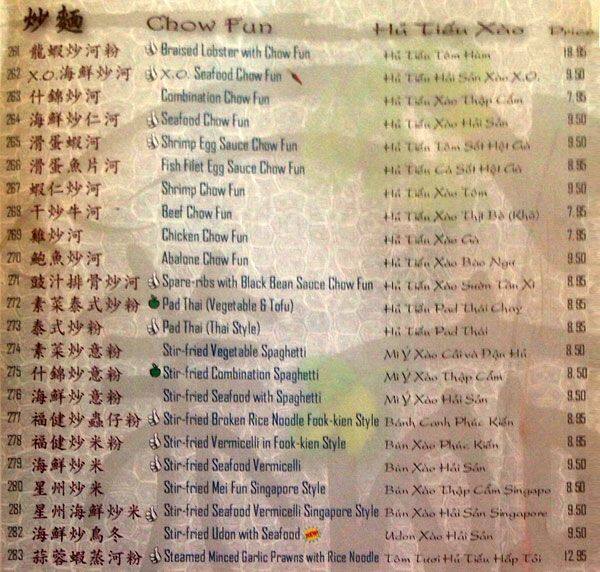 炒麵 Chow Fun Hủ Tiếu Xào Price
261 龍蝦炒河粉 Braised Lobster with Chow Fun Hủ Tiếu Tôm Hùm 18.95
262 X.O.海鮮炒河 X.O. Seafood Chow Fun Hủ Tiếu Hải Sản Xào X.O. 9.50
263 什錦炒河 Combination Chow Fun Hủ Tiếu Xào Thập Cẩm 7.95
264 海鮮炒仁河 Seafood Chow Fun Hủ Tiếu Xào Hải Sản 9.50
265 滑蛋蝦河 Shrimp Egg Sauce Chow Fun Hủ Tiếu Tôm Sốt Hột Gà 9.50
266 滑蛋魚片河 Fish Filet Egg Sauce Chow Fun Hủ Tiếu Cá Sốt Hột Gà 8.95
267 蝦仁炒河 Shrimp Chow Fun Hủ Tiếu Xào Tôm 9.50
268 干炒牛河 Beef Chow Fun Hủ Tiếu Xào Thịt Bò (Khô) 7.95
269 雞炒河 Chicken Chow Fun Hủ Tiếu Xào Gà 7.95
270 鮑魚炒河 Abalone Chow Fun Hủ Tiếu Xào Bào Ngư 9.50
271 豉汁排骨炒河 Spare-ribs with Black Bean Sauce Chow Fun Hủ Tiếu Xào Sườn Tàu Xì 8.95
272 素菜泰式炒粉 Pad Thai (Vegetable & Tofu) Hủ Tiếu Pad Thái Chay 8.95
273 泰式炒粉 Pad Thai (Thai Style) Hủ Tiếu Pad Thái 8.95
274 素菜炒意粉 Stir-fried Vegetable Spaghetti Mì Ý Xào Cải và Đậu Hủ 8.50
275 什錦炒意粉 Stir-fried Combination Spaghetti Mì Ý Xào Thập Cẩm 8.50
276 海鮮炒意粉 Stir-fried Seafood with Spaghetti Mì Ý Xào Hải Sản 9.50
277 福健炒蟲仔粉 Stir-fried Broken Rice Noodle Fook-kien Style Bánh Canh Phúc Kiến 8.95
278 福健炒米粉 Stir-fried Vermicelli in Fook-kien Style Bún Xào Phúc Kiến 8.95
279 海鮮炒米 Stir-fried Seafood Vermicelli Bún Xào Hải Sản 9.50
280 星州炒米 Stir-fried Mei Fun Singapore Style Bún Xào Thập Cẩm Singapo 8.50
281 星州海鮮炒米 Stir-fried Seafood Vermicelli Singapore Style Bún Xào Hải Sản Singapo 9.50
282 海鮮炒烏冬 Stir-fried Udon with Seafood NEW Udon Xào Hải Sản 9.50
283 蒜蓉蝦蒸河粉 Steamed Minced Garlic Prawns with Rice Noodle Tôm Tươi Hủ Tiếu Hấp Tỏi 12.95